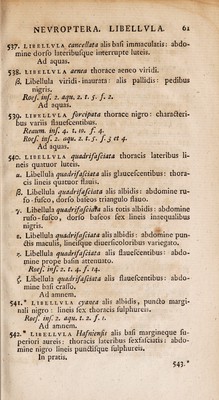 NEUROPTERA. LIBELLULA. 61
537. LIBELLULA cancellata alis basi immaculatis: abdo-
mine dorso lateribusque interrupte luteis.
Ad aquas.
538. LIBELLULA aenea thorace aeneo viridi.
β. Libellula viridi-inaurata: alis pallidis: pedibus
nigris.
Roes. inf. 2. aqu. 2. t. 5. f. 2.
Ad aquas.
539. LIBELLULA forcipata thorace nigro: characteri-
bus variis flavescentibus.
Reaum. inf. 4. t. 10. f. 4.
Roes. inf. 2. aqu. 2. t. 5. f. 3 et 4.
Ad aquas.
540. LIBELLULA quadrifasciata thoracis lateribus li-
neis quatuor luteis.
α. Libellula quadrifasciata alis glaucescentibus: thora-
cis lineis quatuor flavis.
β. Libellula quadrifasciata alis albidis: abdomine ru-
fo-fusco, dorso baseos triangulo flavo.
γ. Libellula quadrifasciata alis totis albidis: abdomine
rufo-fusco; dorso baseos sex lineis inaequalibus
nigris.
Libellula quadrifasciata alis albidis: abdomine pun-
ctis maculis, lineisque diversicoloribus variegato.
Libellula quadrifasciata alis flavescentibus: abdo-
mine prope basin attenuato.
Roes. inf. 2. t. 4. f. 14.
ζ. Libellula quadrifasciata alis flavescentibus: abdo-
mine basi crasso.
Ad amnem.
541.* LIBELLULA cyanea alis albidis, puncto margi-
nali nigro: lineis sex thoracis sulphureis.
Roes. inf. 2. aqu. t. 2. f. 1.
Ad amnem.
542.* LIBELLULA Hafniensis alis basi margineque su-
periori aureis: thoracis lateribus sexfasciatis: abdo-
mine nigro lineis punctisque sulphureis.
In pratis.
543.*